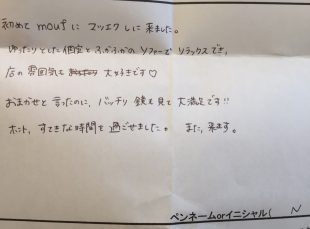 初めて mouf に マツエク しに 来ました。
ゆったりとした個室とふかふかの ソファーで リラックスでき、
店の 雰囲気も 大好きです♡
おまかせと 言ったのに、バッチリ 鏡を 見て 大満足です!!
ホント、すてきな 時間を 過ごせました。 また、来ます。
ペンネームorイニシャル( N